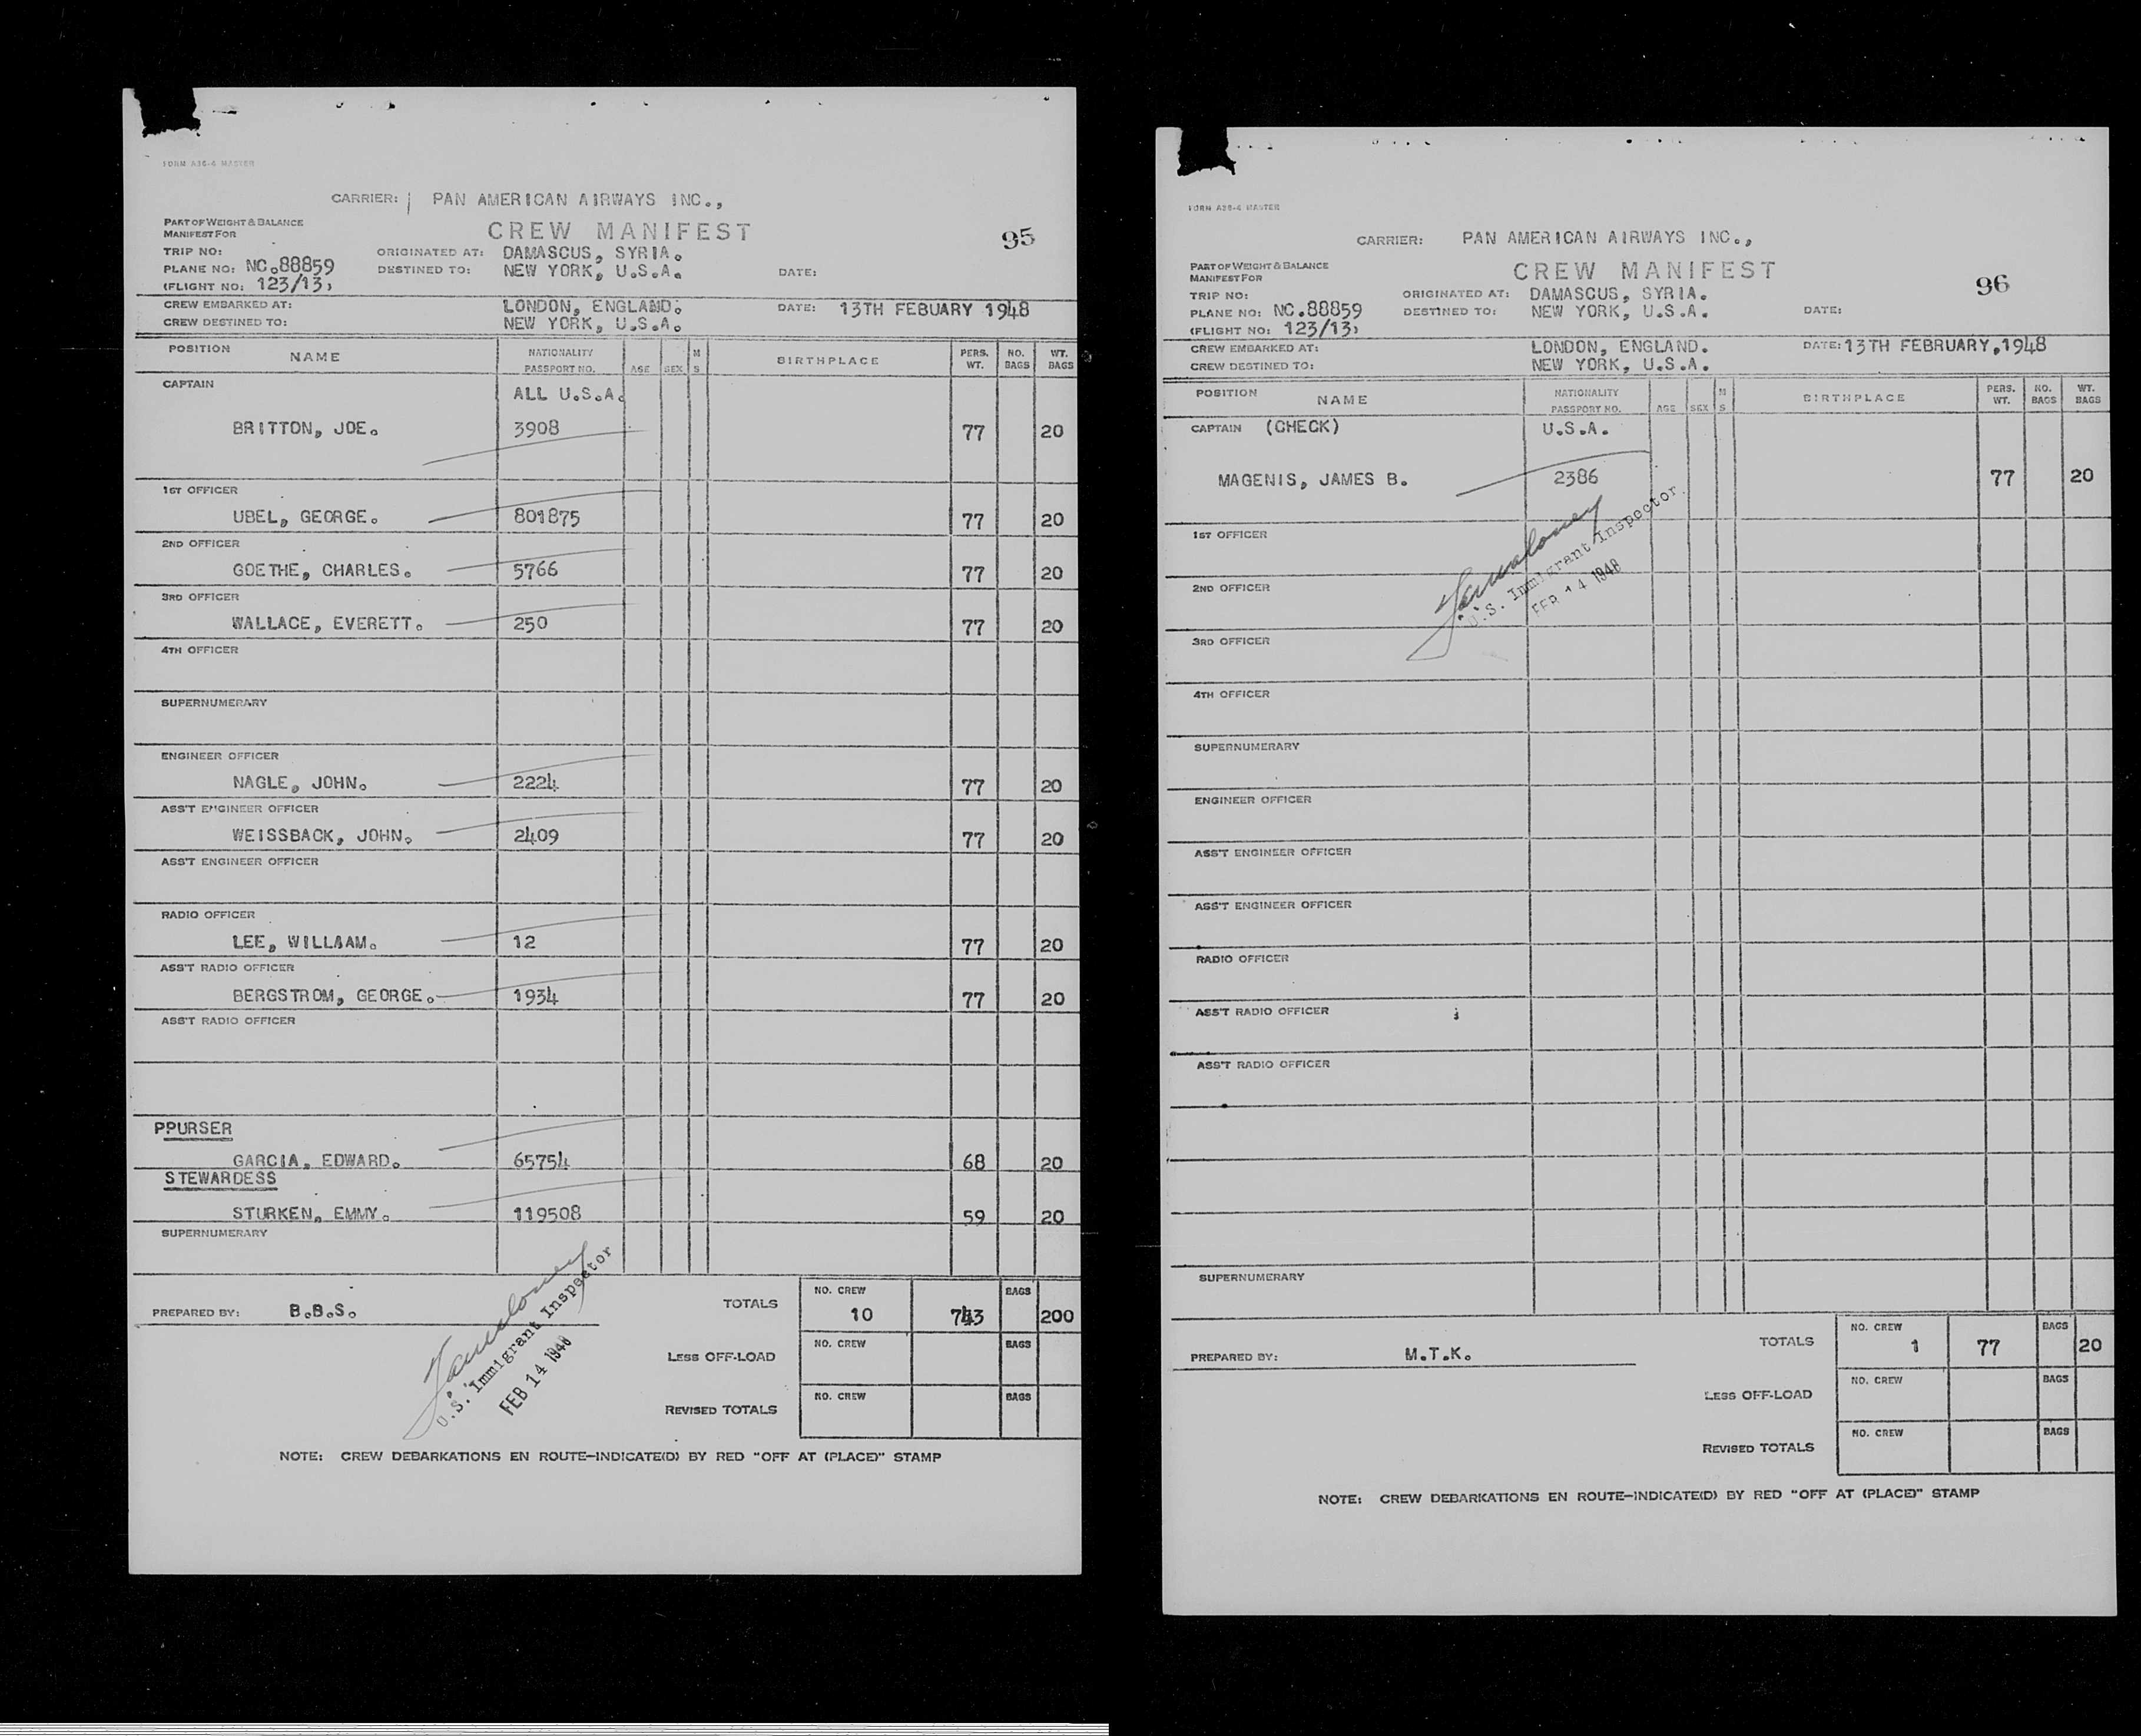 FORM A36-6 MASTER
CARRIER: PAN AMERICAN AIRWAYS INC.,
PART OF WEIGHT & BALANCE
MANIFEST FOR
CREW MANIFEST
95
TRIP NO: ORIGINATED AT: DAMASCUS, SYRIA.
PLANE NO: NC.88859 DESTINED TO: NEW YORK, U.S.A. DATE:
(FLIGHT NO: 123/13)
CREW EMBARKED AT: LONDON, ENGLAND. DATE: 13TH FEBUARY 1948
CREW DESTINED TO: NEW YORK, U.S.A.
POSITION NAME NATIONALITY PASSPORT NO. AGE SEX M S BIRTHPLACE PERS. WT. NO. BAGS WT. BAGS
CAPTAIN ALL U.S.A.
BRITTON, JOE. 3908 77 20
1ST OFFICER
UBEL, GEORGE. 801875 77 20
2ND OFFICER
GOETHE, CHARLES. 5766 77 20
3RD OFFICER
WALLACE, EVERETT. 250 77 20
4TH OFFICER
SUPERNUMERARY
ENGINEER OFFICER
NAGLE, JOHN. 2224 77 20
ASS'T ENGINEER OFFICER
WEISSBACK, JOHN. 2409 77 20
ASS'T ENGINEER OFFICER
RADIO OFFICER
LEE, WILLAAM. 12 77 20
ASS'T RADIO OFFICER
BERGSTROM, GEORGE. 1934 77 20
ASS'T RADIO OFFICER
PPURSER
GARCIA, EDWARD. 65754 68 20
STEWARDESS
STURKEN, EMMY. 119508 59 20
SUPERNUMERARY
PREPARED BY: B.B.S. TOTALS NO. CREW 10 743 BAGS 200
U.S. Immigrant Inspector
FEB 14 1948
LESS OFF-LOAD NO. CREW BAGS
REVISED TOTALS NO. CREW BAGS
NOTE: CREW DEBARKATIONS EN ROUTE-INDICATE(D) BY RED "OFF AT (PLACE)" STAMP
FORM A36-6 MASTER
CARRIER: PAN AMERICAN AIRWAYS INC.,
PART OF WEIGHT & BALANCE
MANIFEST FOR
CREW MANIFEST
96
TRIP NO: ORIGINATED AT: DAMASCUS, SYRIA.
PLANE NO: NC.88859 DESTINED TO: NEW YORK, U.S.A. DATE:
(FLIGHT NO: 123/13)
CREW EMBARKED AT: LONDON, ENGLAND. DATE: 13TH FEBRUARY,1948
CREW DESTINED TO: NEW YORK, U.S.A.
POSITION NAME NATIONALITY PASSPORT NO. AGE SEX M S BIRTHPLACE PERS. WT. NO. BAGS WT. BAGS
CAPTAIN (CHECK) U.S.A.
MAGENIS, JAMES B. 2386 77 20
1ST OFFICER
U.S. Immigrant Inspector
FEB 14 1948
2ND OFFICER
3RD OFFICER
4TH OFFICER
SUPERNUMERARY
ENGINEER OFFICER
ASS'T ENGINEER OFFICER
ASS'T ENGINEER OFFICER
RADIO OFFICER
ASS'T RADIO OFFICER
ASS'T RADIO OFFICER
SUPERNUMERARY
PREPARED BY: M.T.K. TOTALS NO. CREW 1 77 BAGS 20
LESS OFF-LOAD NO. CREW BAGS
REVISED TOTALS NO. CREW BAGS
NOTE: CREW DEBARKATIONS EN ROUTE-INDICATE(D) BY RED "OFF AT (PLACE)" STAMP